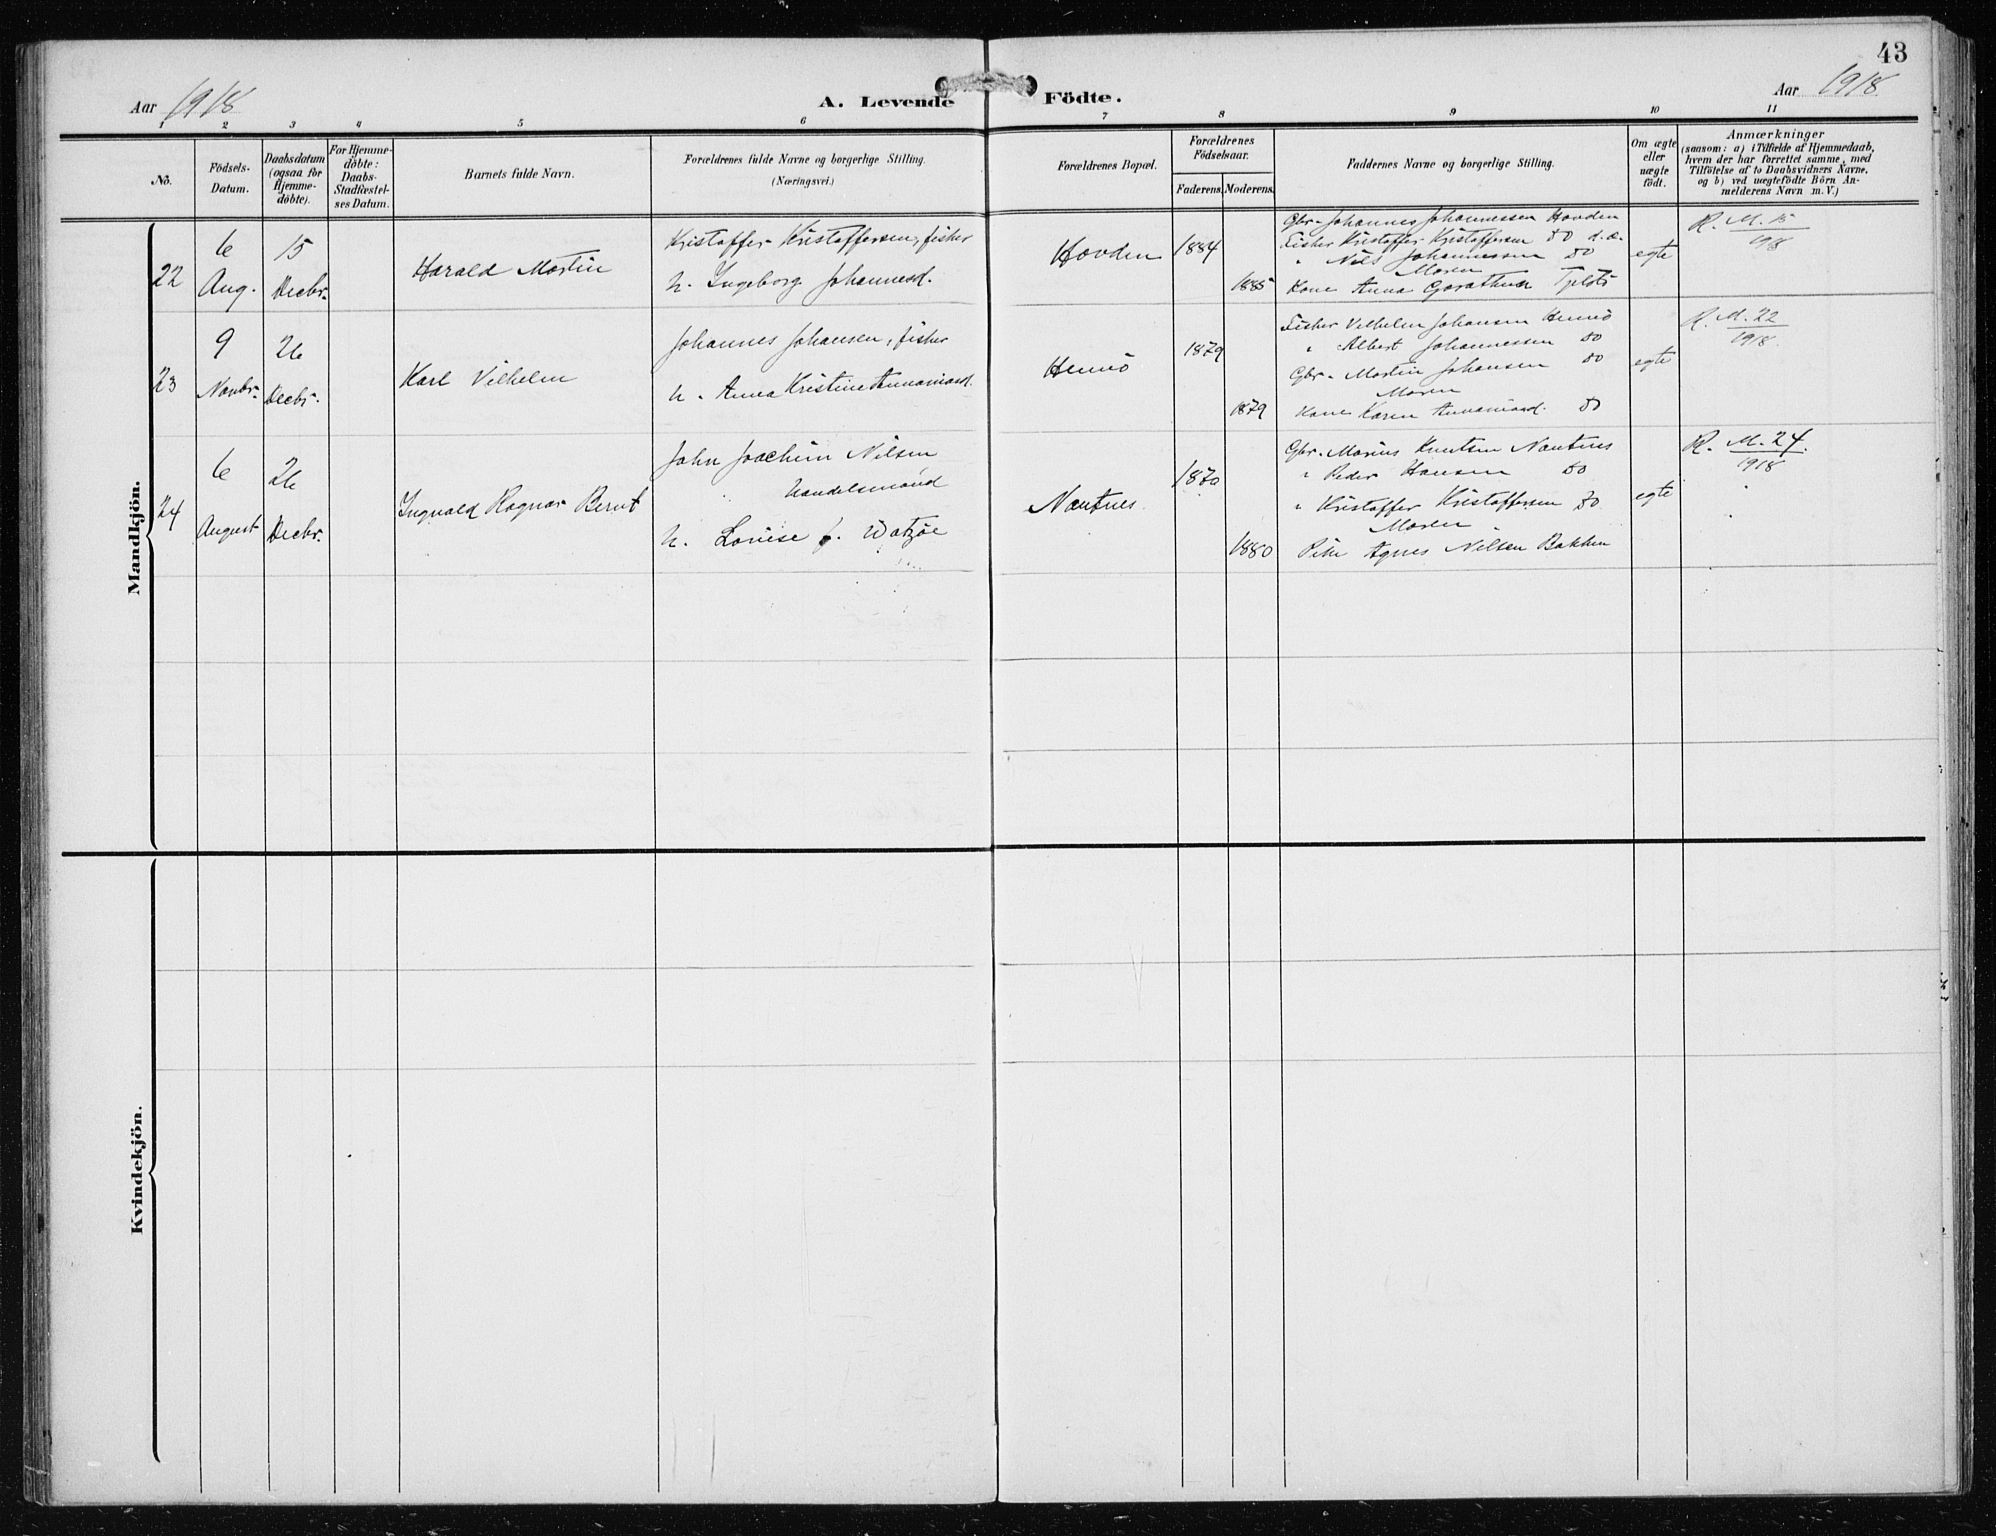 43
Aar 1918
A. Levende Födte.
Aar 1918
1 2 3 4 5 6 7 8 9 10 11
No.
Födsels-
Datum.
Daabsdatum
(ogsaa for
Hjemme-
döbte).
For Hjemme-
döbte:
Daabs-
Stadfæstel-
ses Datum.
Barnets fulde Navn.
Forældrenes fulde Navne og borgerlige Stilling.
(Næringsvei.)
Forældrenes Bopæl.
Forældrenes
Födselsaar.
Faderens. Moderens.
Faddernes Navne og borgerlige Stilling.
Om ægte
eller
uægte
födt.
Anmærkninger
(saasom: a) i Tilfælde af Hjemmedaab,
hvem der har forrettet samme, med
Tilföielse af to Daabsvidners Navne,
og b) ved uægtefödte Börn An-
melderens Navn m. V.)
Mandkjön.
22
6
Aug.
15
Decbr.
Harald Martin
Kristoffer Kristoffersen, fisker
h. Ingeborg Johannesd.
Hovden
1884
1885
Gbr. Johannes Johannessen Hovden
Fisker Kristoffer Kristoffersen do
" Nils Johannessen do
Moren
Kone Anna
egte
R. M. 15
1918
23
9
Novbr.
26
Decbr.
Karl Vilhelm
Johannes Johansen, fisker
h. Anna Kristine
Hennö
1879
1879
Fisker Vilhelm Johansen Hennö
" Albert Johannessen do
Gbr. Martin Johansen do
Moren
Kone Karen do
egte
R. M. 22
1918.
24
6
August
26
Decbr.
Ingvald Ragnar Bernt
John Joachim Nilsen
Handelsmand
h. Lovise f. Watzøe
Nautnes
1870
1880
Gbr. Marius Knutsen Nautnes
" Peder Hansen do
" Kristoffer Kristoffersen do
Moren
Pike Agnes Nilsen Bakken
egte
R. M. 24.
1918
Kvindekjön.